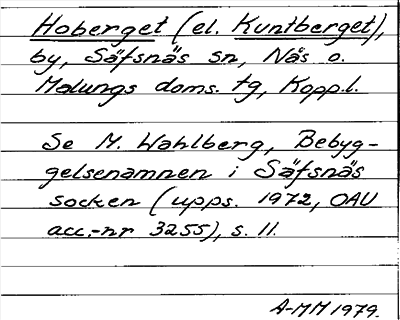 Hoberget (el. Kuntberget),
by, Säfsnäs sn, Nås o.
Malungs doms. tg, Kopp.l.
Se M. Wahlberg, Bebyg-
gelsenamnen i Säfsnäs
socken (upps. 1972, OAU
acc.-nr 3255), s. 11.
A-MM 1979.